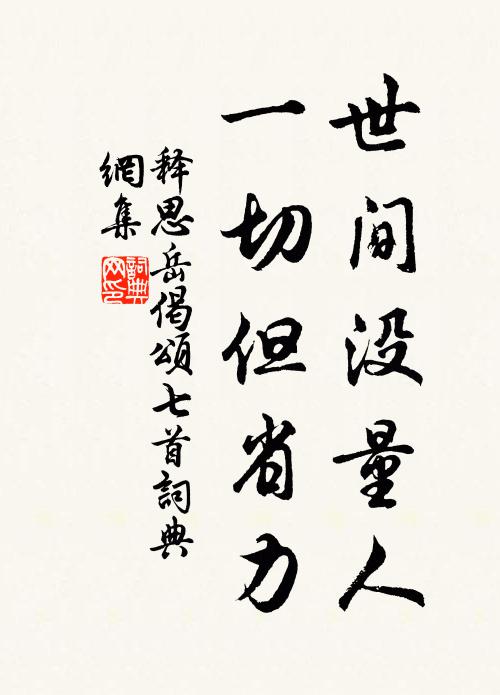 世间没量人
一切但省力
释思岳偈頌七首詞典
網集
詞典網印